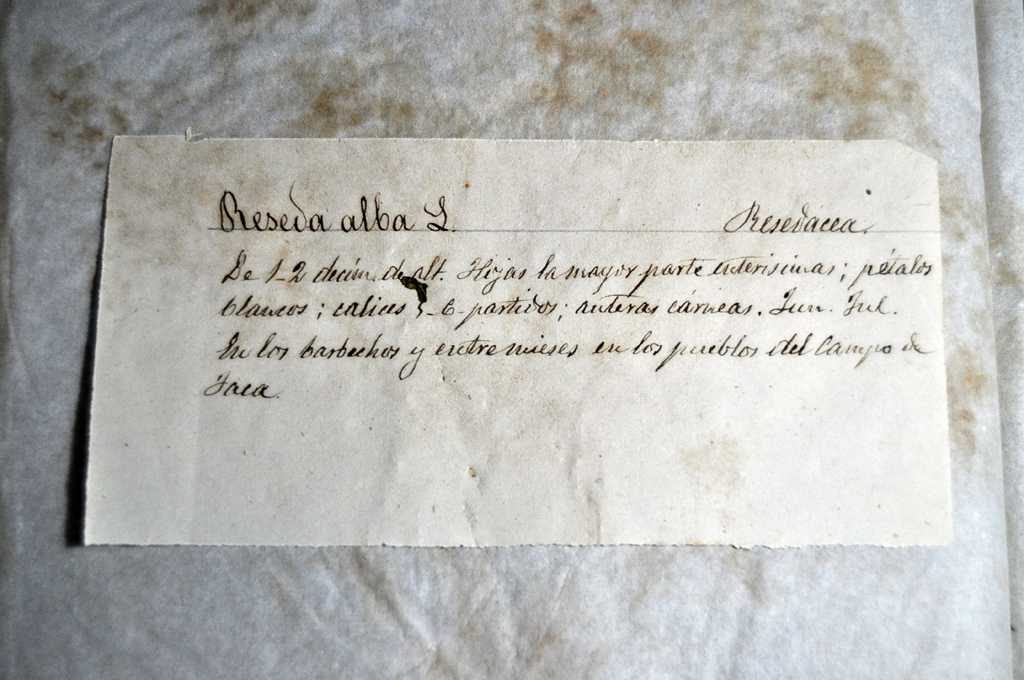 Reseda alba L. Resedacea.
De 1-2 decím. de alt. Hojas la mayor parte enterisimas; pétalos
blancos; calices 5-6-partidos; anteras cárneas. Jun. Jul.
En los barbechos y entre mieses en los pueblos del Campo de
Jaca.